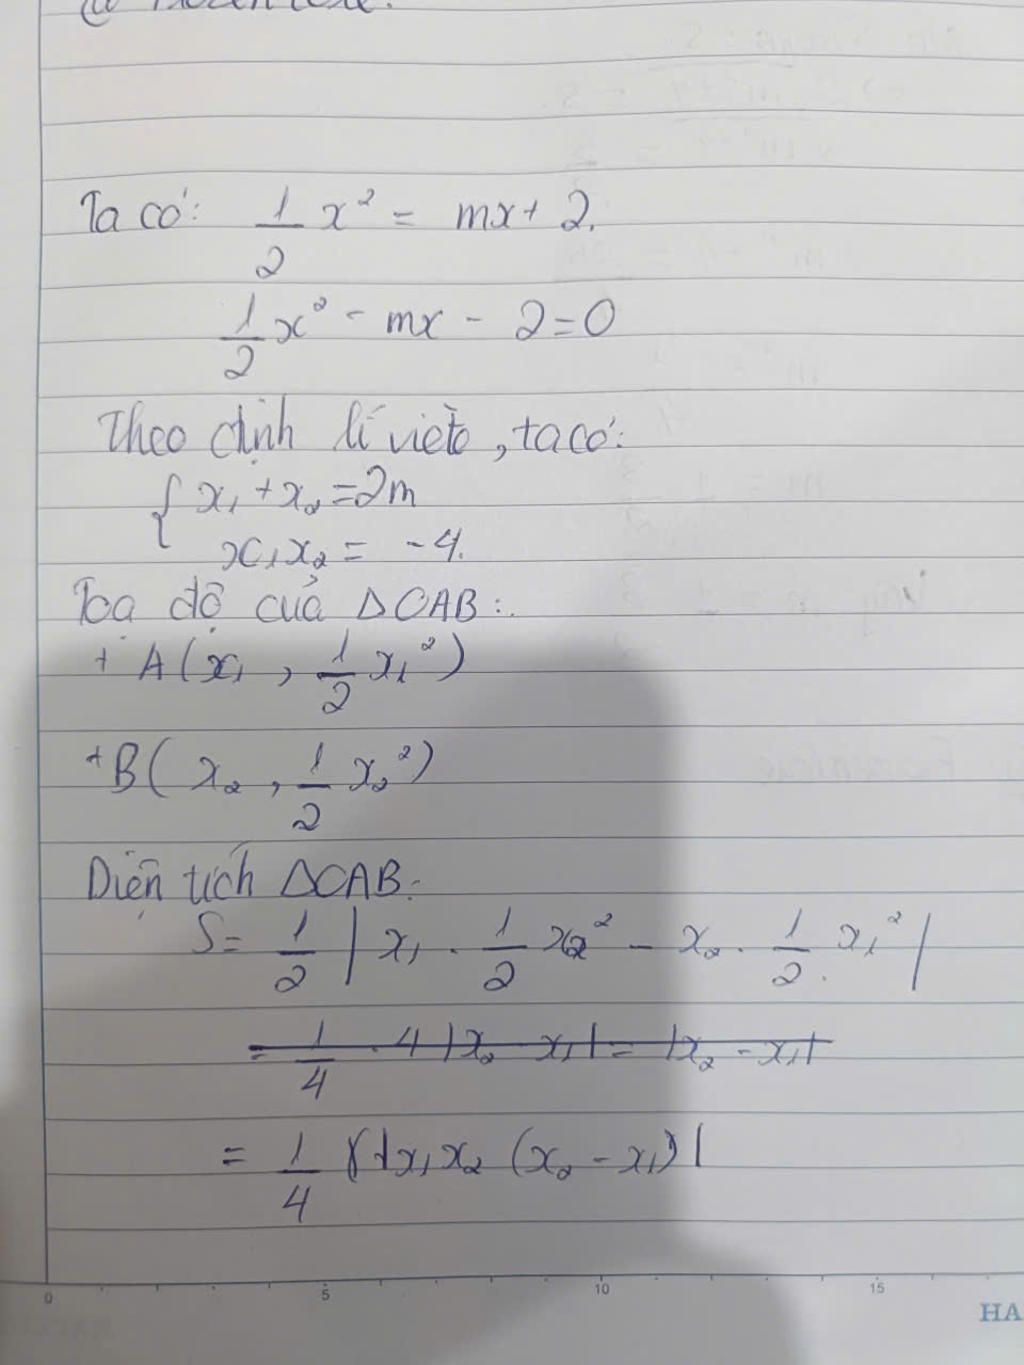 Ta có: 1/2 x² = mx + 2.
1/2 x² - mx - 2 = 0
Theo định lí viète, ta có:
{ x₁ + x₂ = 2m
x₁x₂ = -4.
Toạ độ của ΔOAB:
+ A(x₁, 1/2 x₁²)
+ B(x₂, 1/2 x₂²)
Diện tích ΔOAB:
S = 1/2 | x₁ . 1/2 x₂² - x₂ . 1/2 x₁² |
= 1/4 . 4 |x₂ - x₁| = |x₂ - x₁|
= 1/4 |x₁x₂ (x₂ - x₁)|
0 5 10 15
HA